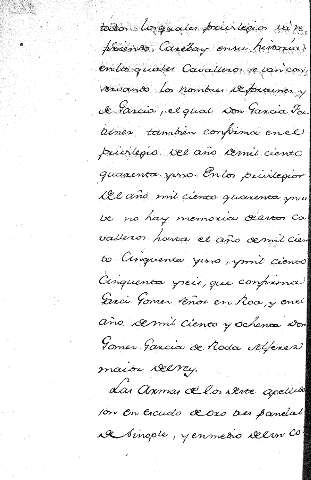 todos los quales privilegios
en los quales Cavalleros se van con
servando los nombres de
de Garcia, el qual Don Garcia
tambien confirma en el
privilegio del año de mil ciento
quarenta y uno. En los privilegios
del año mil ciento quarenta y nu
be no hay memoria de estos ca
valleros hasta el año de mil cien
to Cinquenta y uno, y mil ciento
Cinquenta y seis, que confirma
Garci Gomez Señor en Roa, y en el
año de mil ciento y ochenta Don
Gomez Garcia de Roda Alferez
maior del Rey.
Las Armas de los deste apellido
son en escudo de oro tres
de Sinople, y en medio de un Co